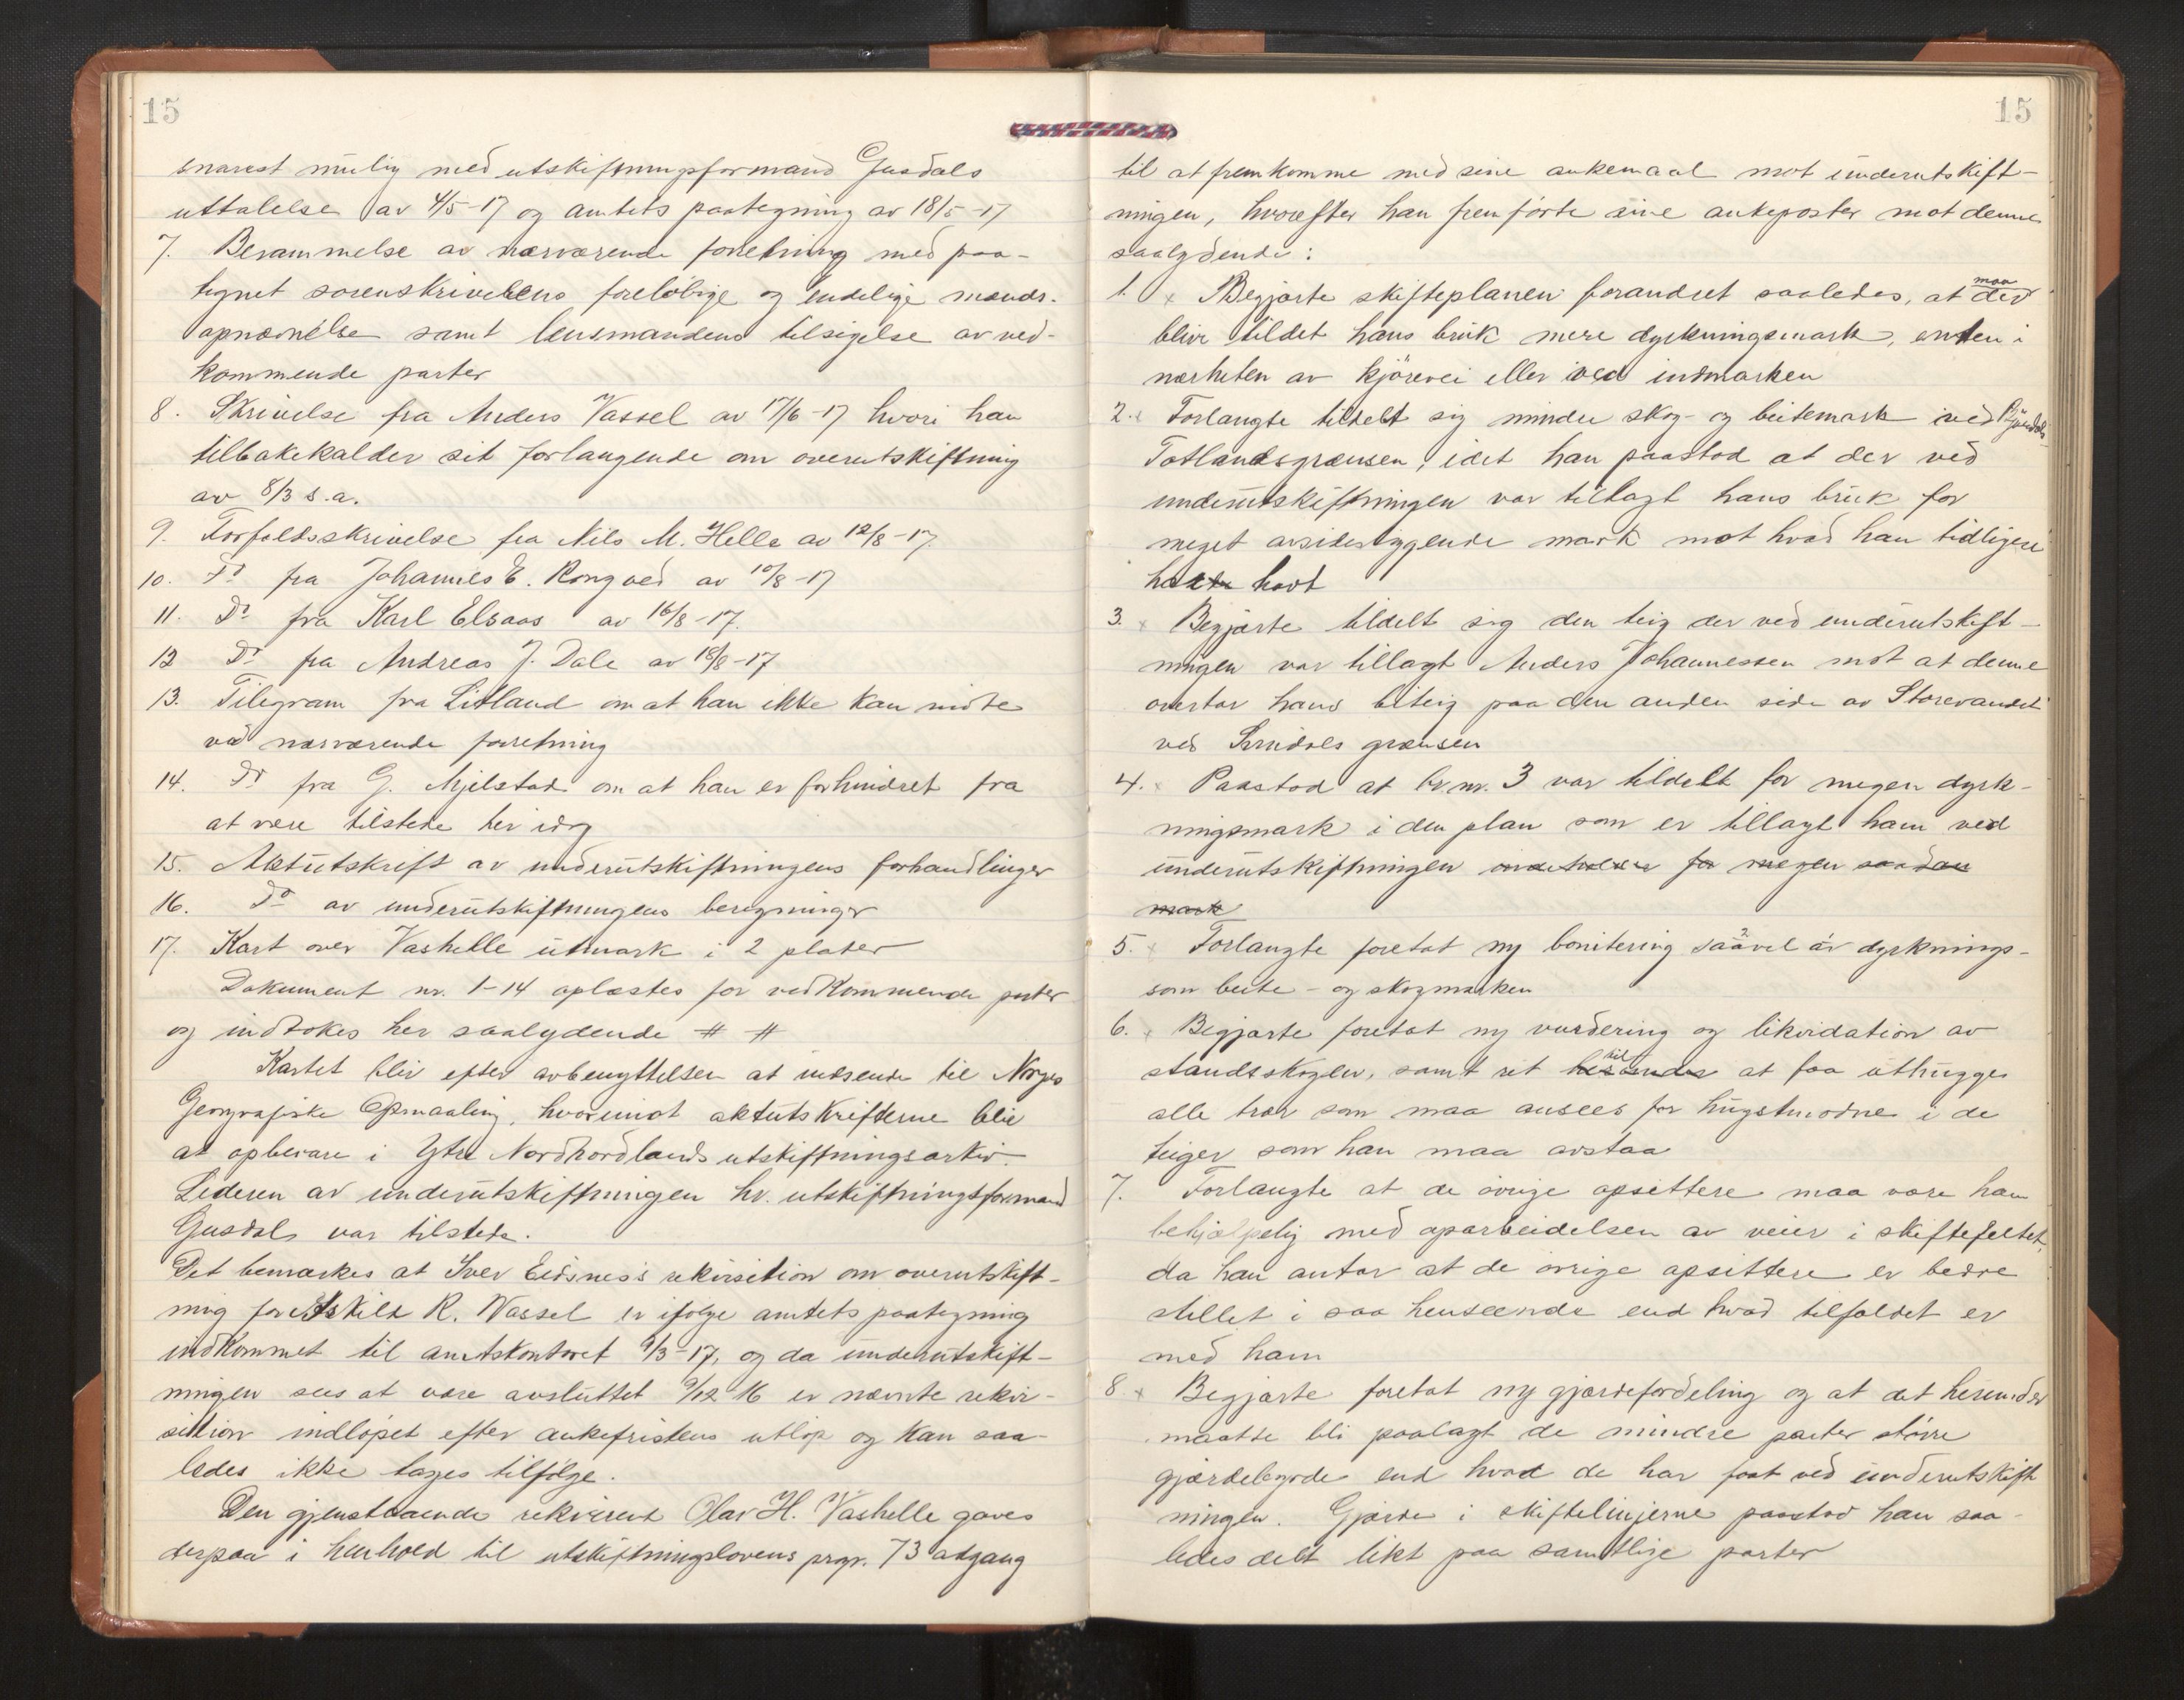 15
snarest mulig med utskiftningsformand Gusdals
uttalelse av 4/5-17 og amtets paategning av 18/5-17
7. Berammelse av nærværende forretning med paa-
tegnet sorenskriverens foreløbige og endelige mands-
opnævnelse samt lensmandens tilsigelse av ved-
kommende parter
8. Skrivelse fra Anders Vassel av 17/6-17 hvori han
tilbakekalder sit forlangende om overutskiftning
av 8/3 s.a.
9. Forfaldsskrivelse fra Nils M. Helle av 12/8-17.
10. Do fra Johannes E. Rongved av 10/8-17
11. Do fra Karl Elsaas av 16/8-17.
12 Do fra Andreas J. Dale av 18/8-17
13. Telegram fra Litland om at han ikke kan møte
ved nærværende forretning
14. Do fra G. Mjelstad om at han er forhindret fra
at være tilstede her idag
15. Aktutskrift av underutskiftningens forhandlinger
16. Do av underutskiftningens beregninger
17. Kart over Vashelle utmark i 2 plater
Dokument nr. 1-14 oplæstes for vedkommende parter
og indtokes her saalydende # #
Kartet blir efter avbenyttelsen at indsende til Norges
Geografiske Opmaaling, hvorimot aktutskrifterne blir
at opbevare i Ytre Nordhordlands utskiftningsarkiv.
Lederen av underutskiftningen hr. utskiftningsformand
Gusdal var tilstede.
Det bemerkes at Iver Eidsnes's rekvisition om overutskift-
ning for Eskild R. Vassel er ifølge amtets paategning
indkommet til amtskontoret 9/3-17, og da underutskift-
ningen sees at være avsluttet 9/12 16 er nævnte rekvi-
sition indløpet efter ankefristens utløp og kan saa-
ledes ikke tages tilfølge.
Den gjenstaaende rekvirent Olav H. Vashelle gaves
derpaa i henhold til utskiftningslovens prgr. 73 adgang
15
til at fremkomme med sine ankemaal mot underutskift-
ningen, hvorefter han fremførte sine ankeposter mot denne
saalydende:
1. x Begjærte skifteplanen forandret saaledes, at der maa
blive tildelt hans bruk mere dyrkningsmark, enten i
nærheten av kjørevei eller ved indmarken
2. x Forlangte tildelt sig mindre skog- og beitemark ved
Totlandsgrænsen, idet han paastod at der ved
underutskiftningen var tillagt hans bruk for
meget avsidesliggende mark mot hvad han tidligere
hadde havt
3. x Begjærte tildelt sig den teig der ved underutskift-
ningen var tillagt Anders Johannessen mot at denne
overtar hans liteig paa den anden side av Storevandet
ved grænsen
4. x Paastod at br.nr. 3 var tildelt for megen dyrk-
ningsmark i den plan som er tillagt ham ved
underutskiftningen indeholder for megen saadan
mark
5. x Forlangte foretat ny bonitering saavel av dyrknings-
som beite- og skogmarken
6. x Begjærte foretat ny vurdering og likvidation av
standskogen, samt ret til at faa uthugge
alle trær som maa ansees for hugstmodne i de
teiger som han maa avstaa
7. Forlangte at de øvrige opsittere maa være ham
behjælpelig med oparbeidelsen av veier i skiftefeltet,
da han antar at de øvrige opsittere er bedre
stillet i saa henseende end hvad tilfældet er
med ham
8. x Begjærte foretat ny gjærdefordeling og at det herunder
maatte bli paalagt de mindre parter større
gjærdebyrde end hvad de har faat ved underutskift
ningen. Gjærde i skiftelinjerne paastod han saa-
ledes delt likt paa samtlige parter